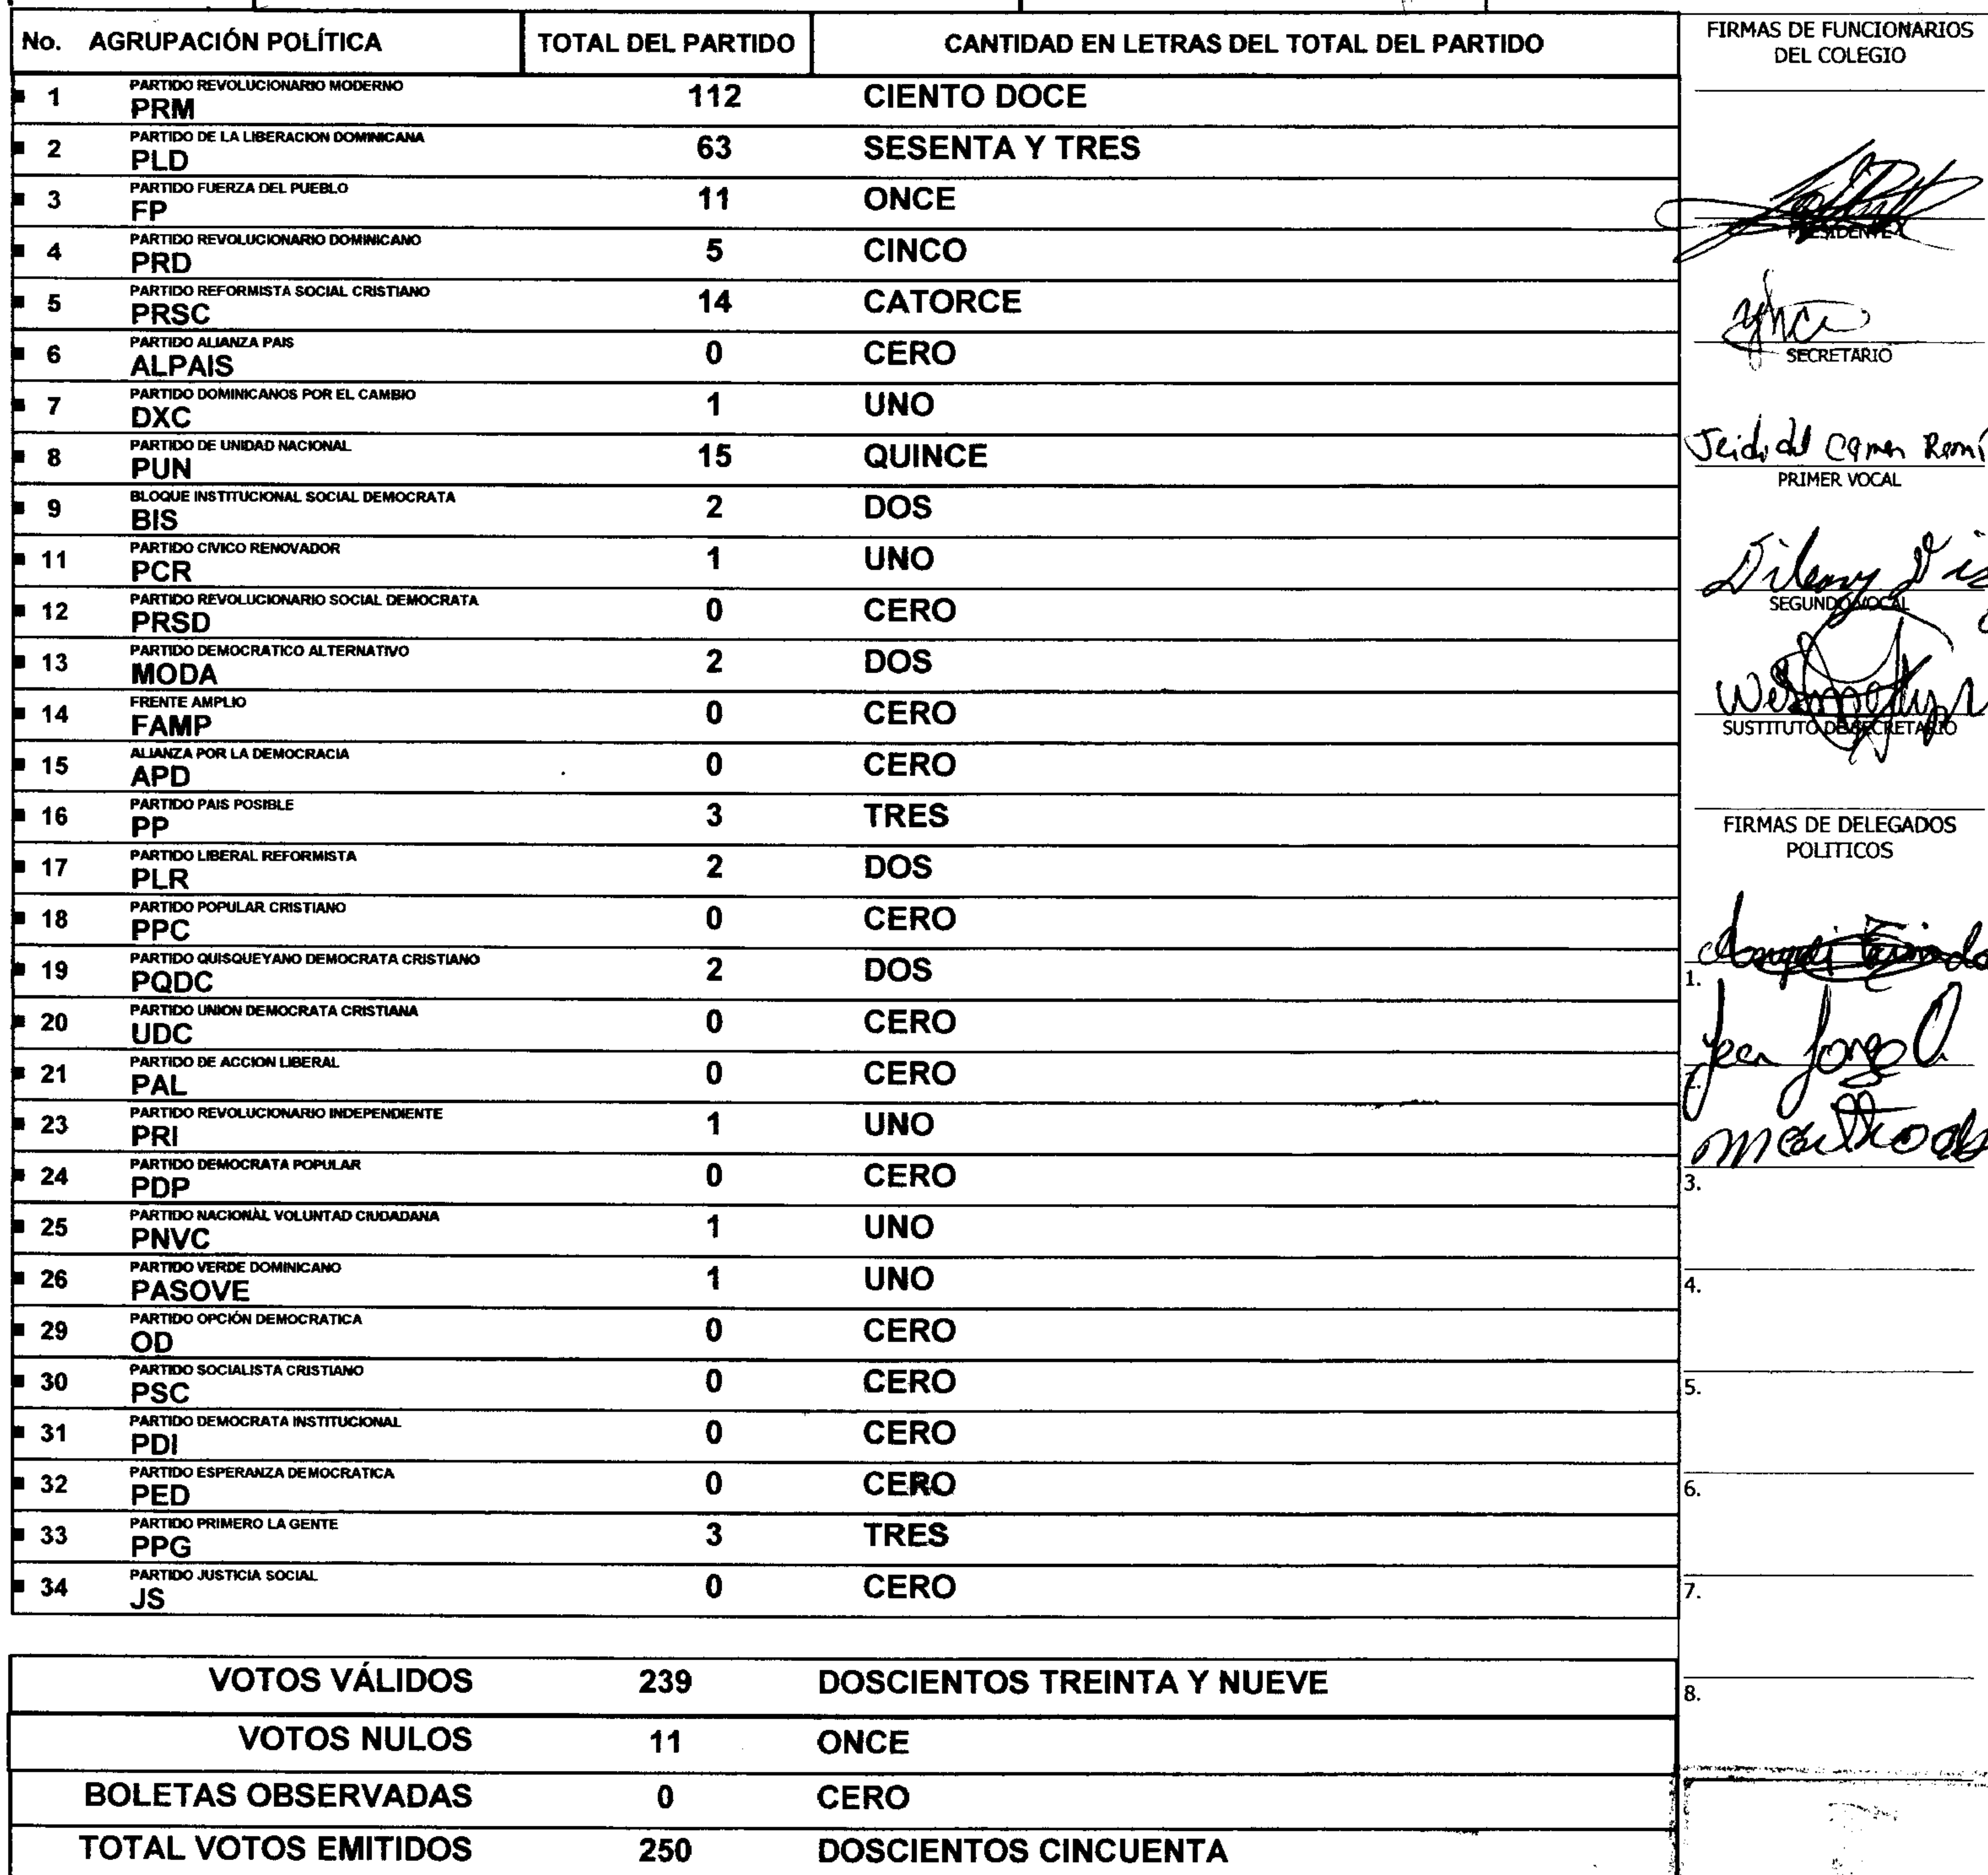 No. AGRUPACIÓN POLÍTICA TOTAL DEL PARTIDO CANTIDAD EN LETRAS DEL TOTAL DEL PARTIDO
PARTIDO REVOLUCIONARIO MODERNO
1 PRM 112 CIENTO DOCE
PARTIDO DE LA LIBERACION DOMINICANA
2 PLD 63 SESENTA Y TRES
PARTIDO FUERZA DEL PUEBLO
3 FP 11 ONCE
PARTIDO REVOLUCIONARIO DOMINICANO
4 PRD 5 CINCO
PARTIDO REFORMISTA SOCIAL CRISTIANO
5 PRSC 14 CATORCE
PARTIDO ALIANZA PAIS
6 ALPAIS 0 CERO
PARTIDO DOMINICANOS POR EL CAMBIO
7 DXC 1 UNO
PARTIDO DE UNIDAD NACIONAL
8 PUN 15 QUINCE
BLOQUE INSTITUCIONAL SOCIAL DEMOCRATA
9 BIS 2 DOS
PARTIDO CIVICO RENOVADOR
11 PCR 1 UNO
PARTIDO REVOLUCIONARIO SOCIAL DEMOCRATA
12 PRSD 0 CERO
PARTIDO DEMOCRATICO ALTERNATIVO
13 MODA 2 DOS
FRENTE AMPLIO
14 FAMP 0 CERO
ALIANZA POR LA DEMOCRACIA
15 APD 0 CERO
PARTIDO PAIS POSIBLE
16 PP 3 TRES
PARTIDO LIBERAL REFORMISTA
17 PLR 2 DOS
PARTIDO POPULAR CRISTIANO
18 PPC 0 CERO
PARTIDO QUISQUEYANO DEMOCRATA CRISTIANO
19 PQDC 2 DOS
PARTIDO UNION DEMOCRATA CRISTIANA
20 UDC 0 CERO
PARTIDO DE ACCION LIBERAL
21 PAL 0 CERO
PARTIDO REVOLUCIONARIO INDEPENDIENTE
23 PRI 1 UNO
PARTIDO DEMOCRATA POPULAR
24 PDP 0 CERO
PARTIDO NACIONAL VOLUNTAD CIUDADANA
25 PNVC 1 UNO
PARTIDO VERDE DOMINICANO
26 PASOVE 1 UNO
PARTIDO OPCIÓN DEMOCRATICA
29 OD 0 CERO
PARTIDO SOCIALISTA CRISTIANO
30 PSC 0 CERO
PARTIDO DEMOCRATA INSTITUCIONAL
31 PDI 0 CERO
PARTIDO ESPERANZA DEMOCRATICA
32 PED 0 CERO
PARTIDO PRIMERO LA GENTE
33 PPG 3 TRES
PARTIDO JUSTICIA SOCIAL
34 JS 0 CERO
VOTOS VÁLIDOS 239 DOSCIENTOS TREINTA Y NUEVE
VOTOS NULOS 11 ONCE
BOLETAS OBSERVADAS 0 CERO
TOTAL VOTOS EMITIDOS 250 DOSCIENTOS CINCUENTA
FIRMAS DE FUNCIONARIOS
DEL COLEGIO
PRESIDENTE
SECRETARIO
PRIMER VOCAL
SEGUNDO VOCAL
SUSTITUTO DE SECRETARIO
FIRMAS DE DELEGADOS
POLITICOS
1.
2. Jorge
3.
4.
5.
6.
7.
8.